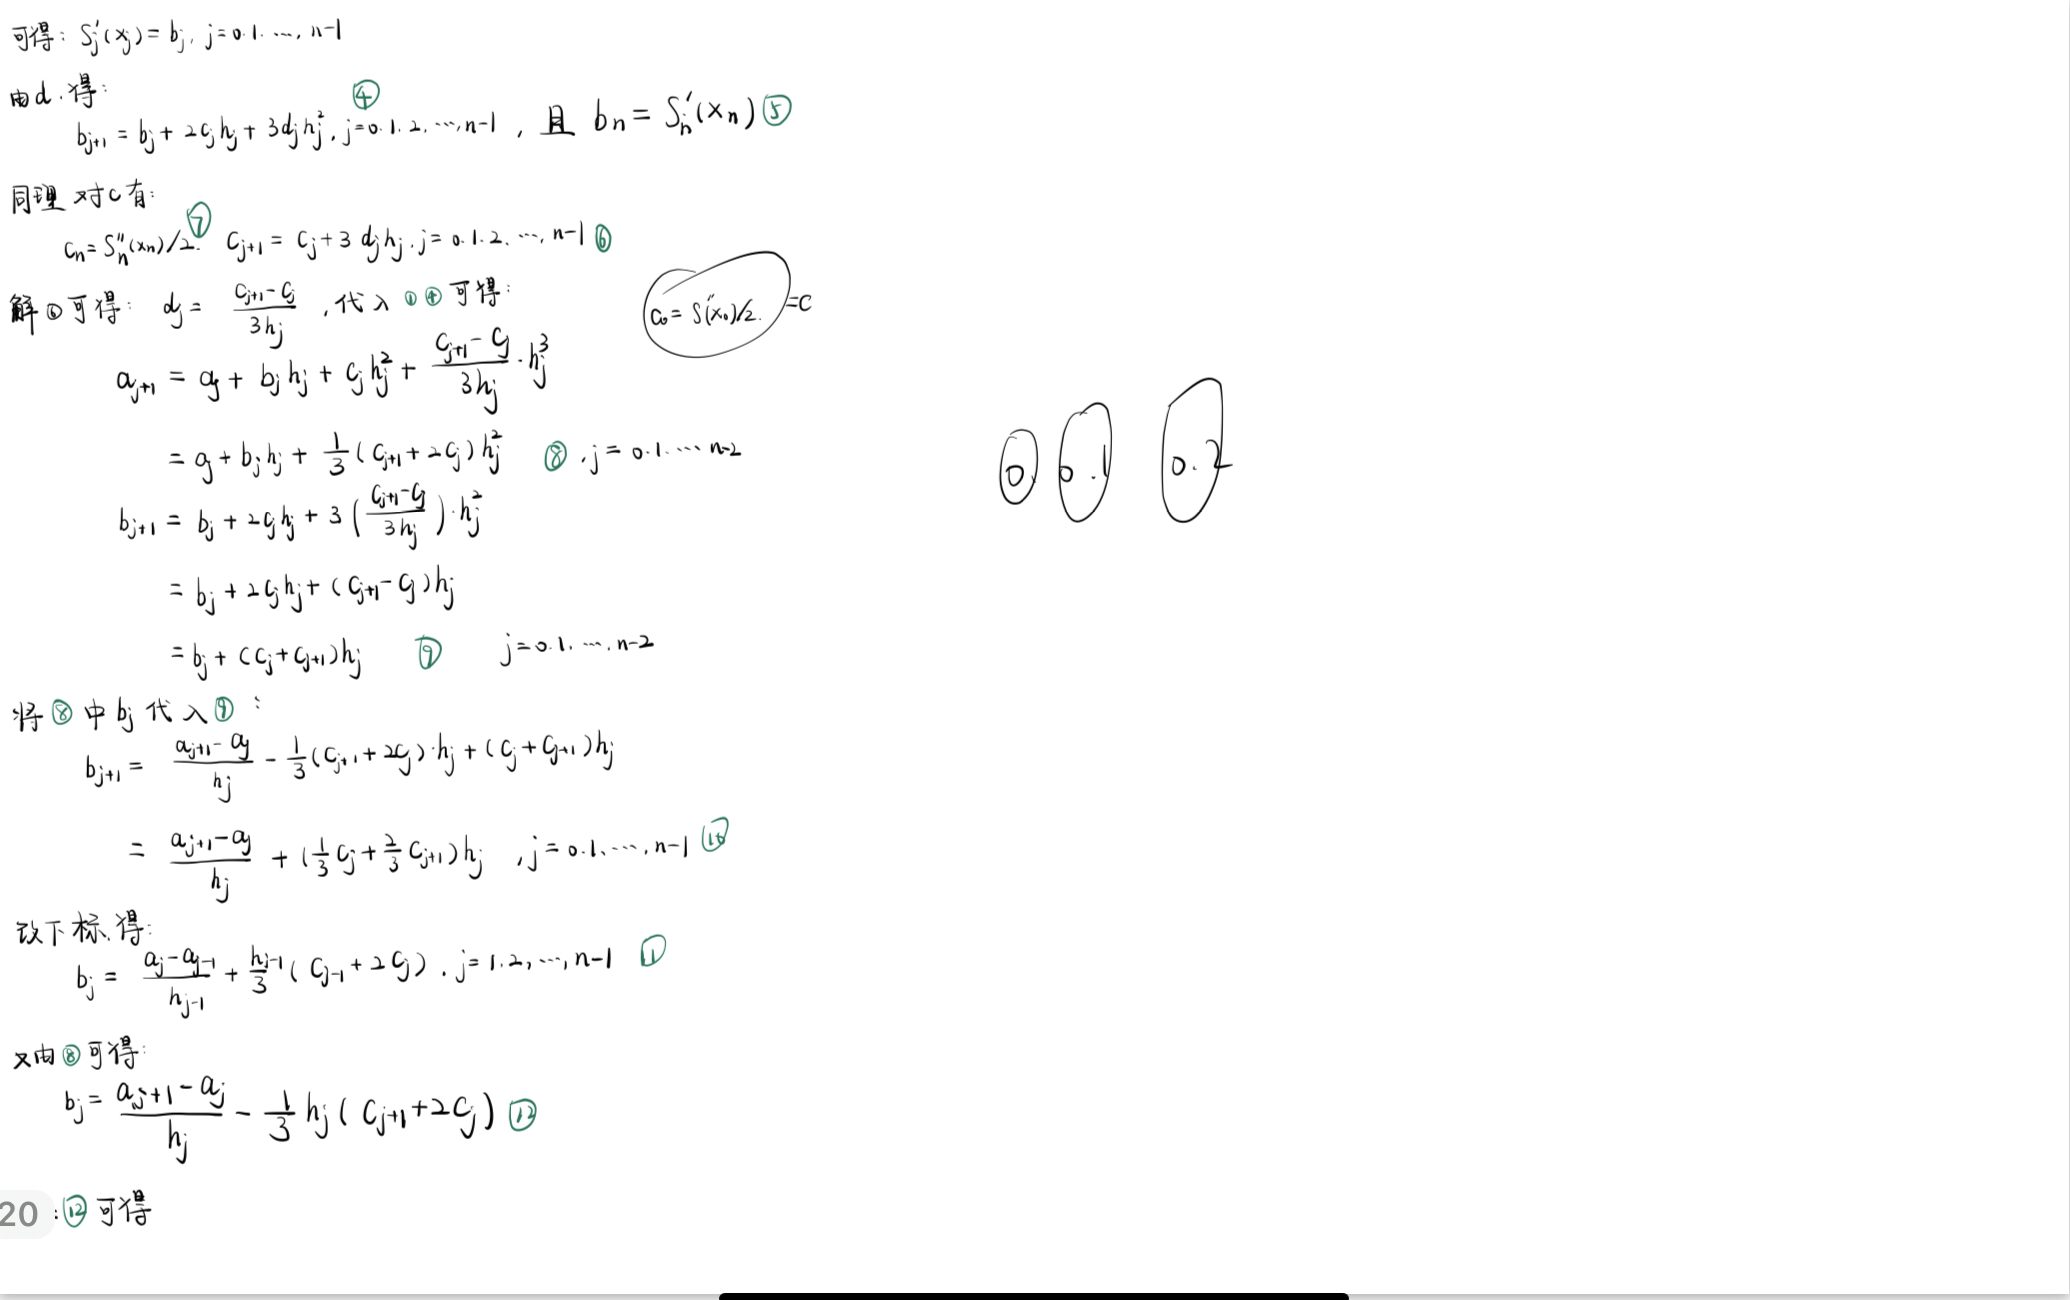 可得: S_j'(x_j) = b_j, j=0.1. ..., n-1
由d.得:
b_{j+1} = b_j + 2c_j h_j + 3d_j h_j^2, j=0.1.2. ..., n-1 ④, 且 b_n = S_n'(x_n) ⑤
同理对c有:
c_n = S_n''(x_n)/2. ⑦ c_{j+1} = c_j + 3 d_j h_j. j=0.1.2. ..., n-1 ⑥
解⑥可得: d_j = \frac{c_{j+1}-c_j}{3h_j}, 代入①④可得:
c_0 = S''(x_0)/2. =c
a_{j+1} = a_j + b_j h_j + c_j h_j^2 + \frac{c_{j+1}-c_j}{3h_j} · h_j^3
= a_j + b_j h_j + \frac{1}{3}(c_{j+1}+2c_j)h_j^2 ⑧, j=0.1. ... n-2
0. 0.1 0.2
b_{j+1} = b_j + 2c_j h_j + 3(\frac{c_{j+1}-c_j}{3h_j})·h_j^2
= b_j + 2c_j h_j + (c_{j+1}-c_j)h_j
= b_j + (c_j+c_{j+1})h_j ⑨ j=0.1. ..., n-2
将⑧中b_j代入⑨:
b_{j+1} = \frac{a_{j+1}-a_j}{h_j} - \frac{1}{3}(c_{j+1}+2c_j)·h_j + (c_j+c_{j+1})h_j
= \frac{a_{j+1}-a_j}{h_j} + (\frac{1}{3}c_j+\frac{2}{3}c_{j+1})h_j, j=0.1. ..., n-1 ⑩
改下标.得:
b_j = \frac{a_j-a_{j-1}}{h_{j-1}} + \frac{h_{j-1}}{3}(c_{j-1}+2c_j). j=1.2, ..., n-1 ⑪
又由⑧可得:
b_j = \frac{a_{j+1}-a_j}{h_j} - \frac{1}{3}h_j(c_{j+1}+2c_j) ⑫
20 : ⑫可得